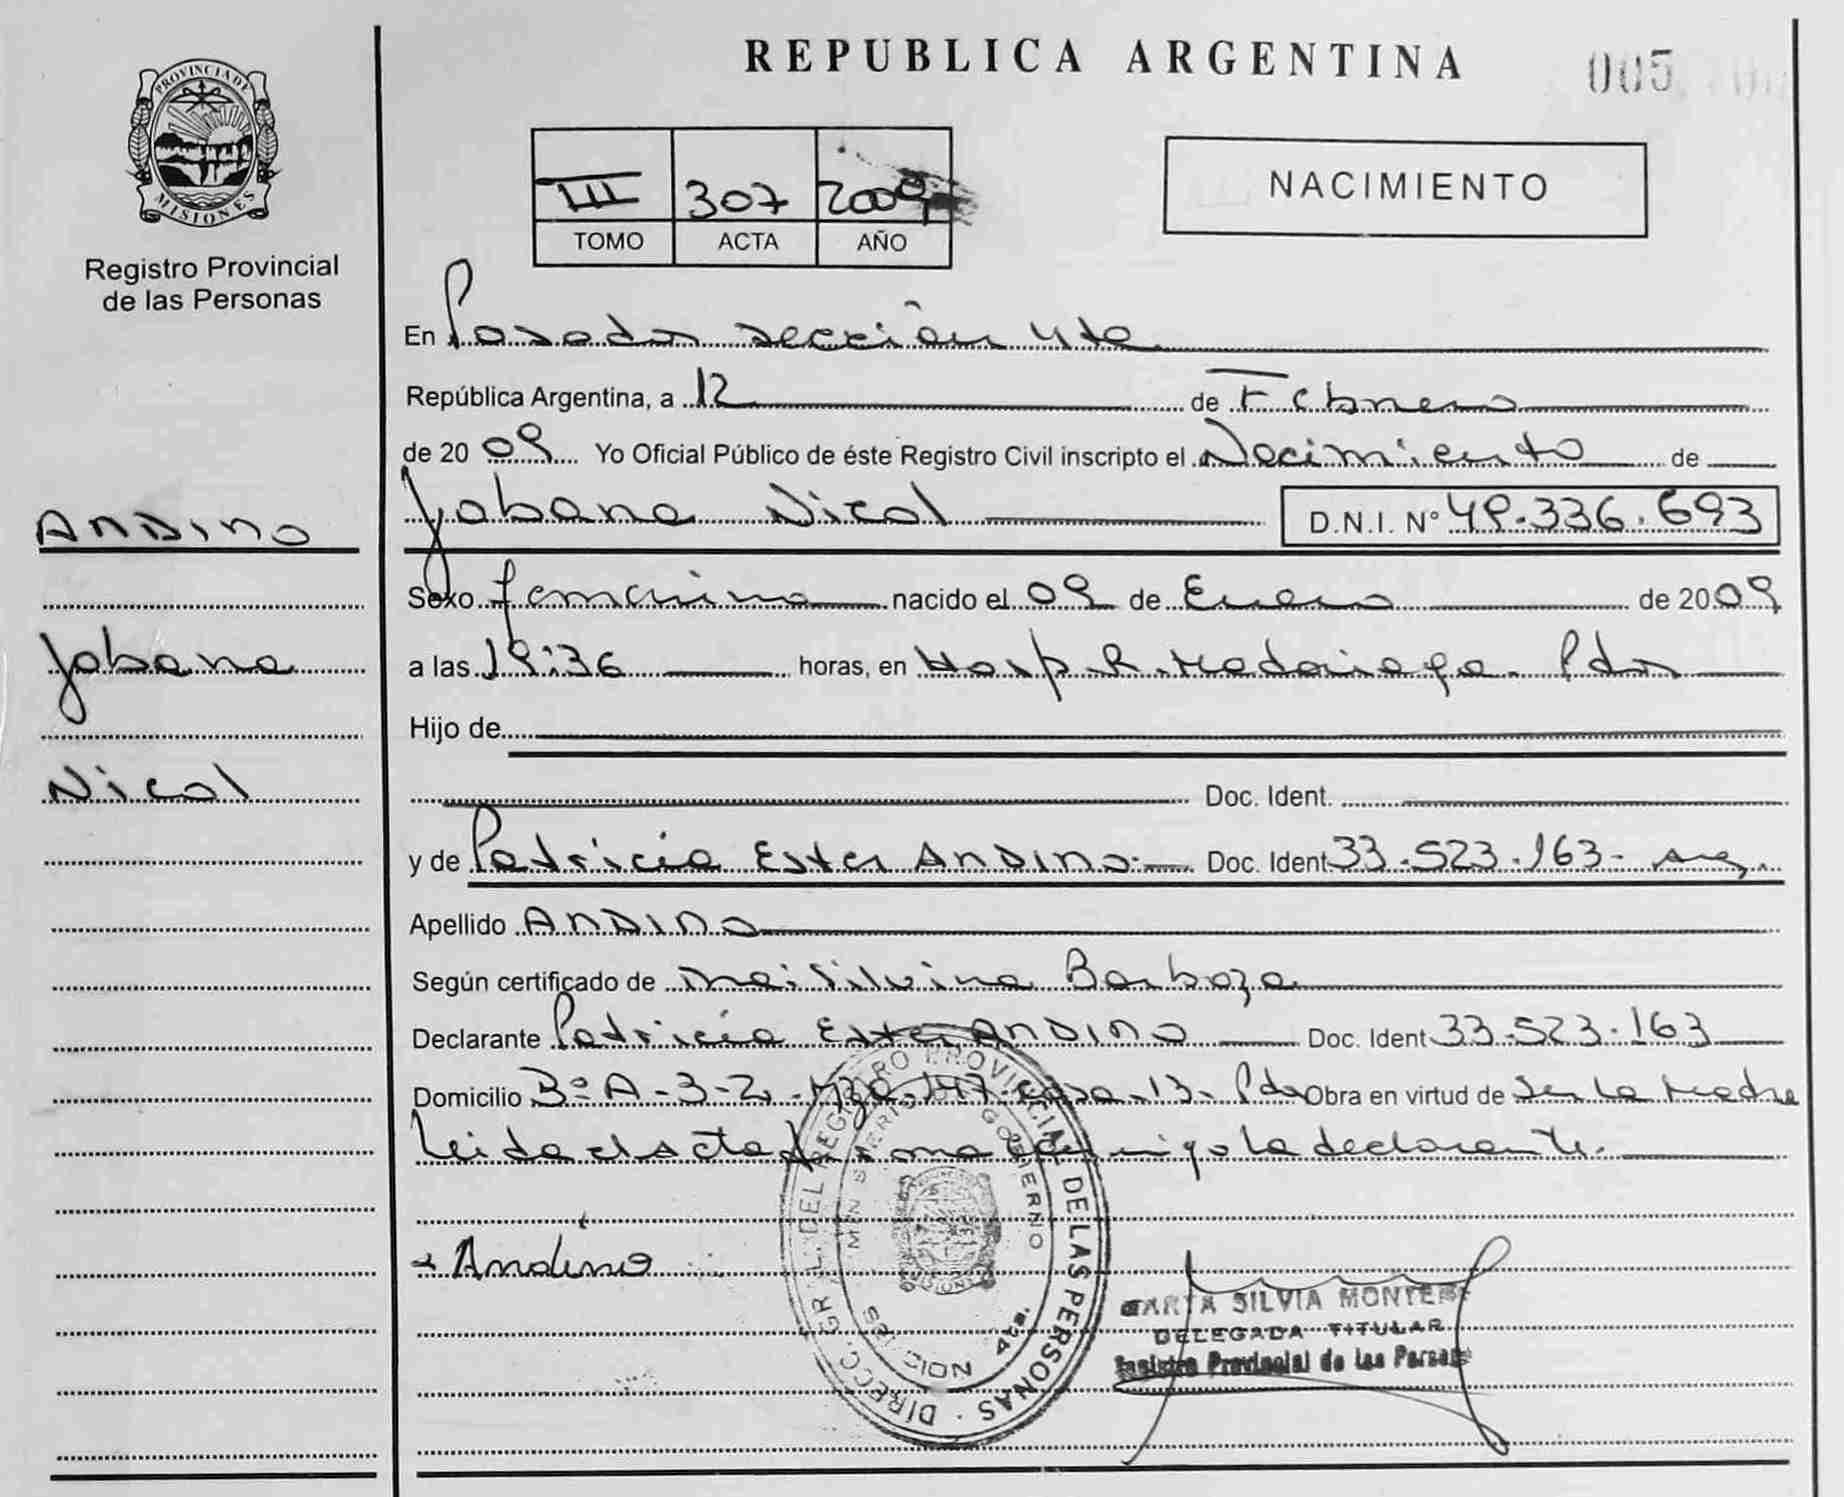 REPUBLICA ARGENTINA
005
PROVINCIA DE
MISIONES
Registro Provincial
de las Personas
III 307 2009
TOMO ACTA AÑO
NACIMIENTO
En Posadas sección 4ta
República Argentina, a 12 de Febrero
de 2009 Yo Oficial Público de éste Registro Civil inscripto el Nacimiento de
Jobana Nicol D.N.I. N° 49.336.693
ANDINO
Jobana
Nicol
Sexo femenino nacido el 09 de Enero de 2009
a las 19:36 horas, en Hosp. R. Madariaga - Pdas
Hijo de
Doc. Ident.
y de Patricia Ester ANDINO.- Doc. Ident. 33.523.163- arg.
Apellido ANDINO
Según certificado de Silvina Barboza
Declarante Patricia Ester ANDINO Doc. Ident 33.523.163
Domicilio B° A-3-2, mza, 147, casa, 13. Pdas Obra en virtud de ser la Madre
leida el acta firma conmigo la declarante.
Andino
DIRECC. GRAL. DEL REGISTRO PROVINCIAL DE LAS PERSONAS
MINISTERIO DE GOBIERNO
4ta.
MISIONES
MARTA SILVIA
DELEGADA TITULAR
Registro Provincial de las Personas